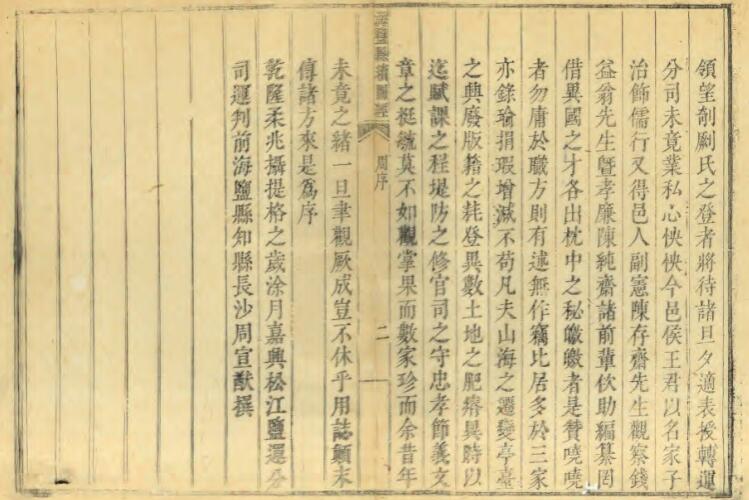 領望剞劂氏之登者將待諸旦夕適表授轉運
分司未竟業私心怏怏今邑侯王君以名家子
治飾儒行又得邑人副憲陳存齋先生觀察錢
益翁先生暨孝廉陳純齋諸前輩佽助編纂罔
借異國之才各出枕中之秘皦皦者是贊嘵嘵
者勿庸於職方則有述無作竊比居多於三家
亦錄瑜捐瑕增減不苟凡夫山海之遷變亭臺
之興廢版籍之耗登異數土地之肥瘠異時以
迄賦課之程堤防之修官司之守忠孝節義文
章之挺毓莫不如觀掌果而數家珍而余昔年
海鹽縣續圖經
周序
二
未竟之緒一旦聿觀厥成豈不休乎用誌顛末
傳諸方來是爲序
乾隆柔兆攝提格之歲涂月嘉興松江鹽運分
司運判前海鹽縣知縣長沙周宣猷撰